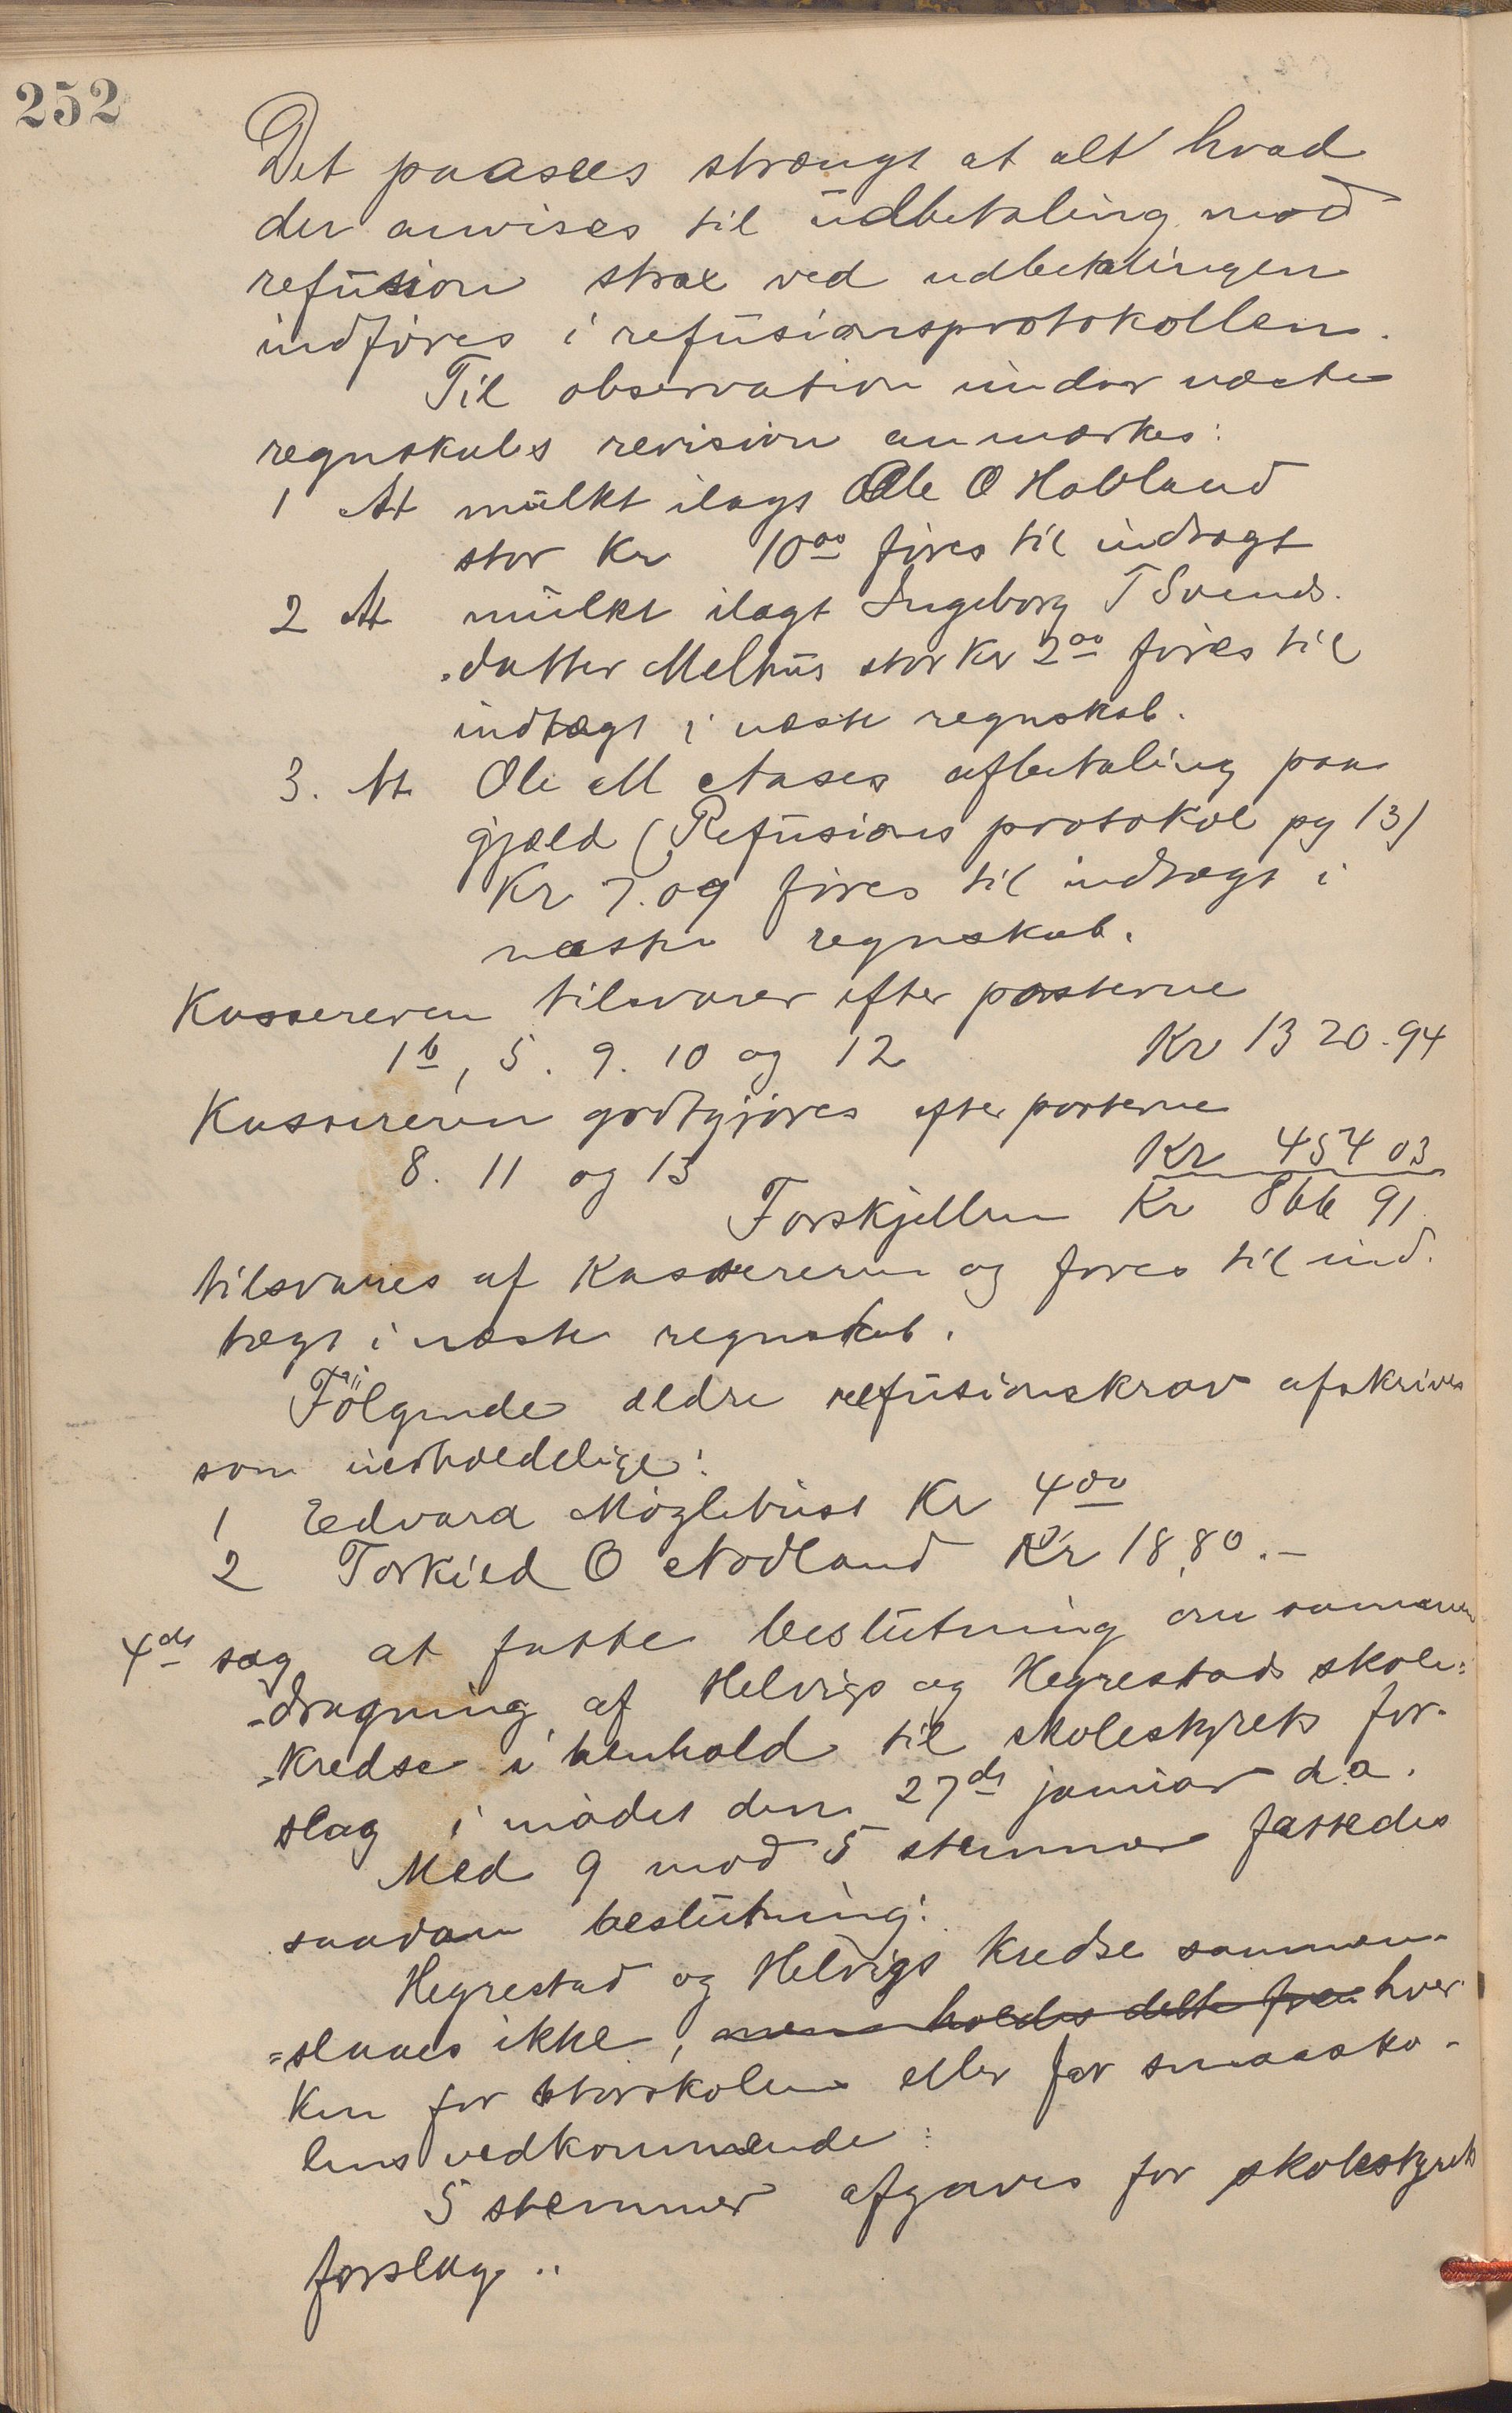 252
Det paasees strængt at alt hvad
der anvises til udbetaling mod
refusion strax ved udbetalingen
indføres i refusionsprotokollen.
Til observation under næste
regnskabs revision anmærkes:
1 At mulkt ilagt Ole O Habland
stor Kr 10 00 føres til indtægt
2 At mulkt ilagt Ingeborg T Svends-
datter Melhus stor Kr 2 00 føres til
indtægt i næste regnskab.
3. At Ole M Aases afbetaling paa
gjæld (Refusions protokol pg 13)
Kr 7.09 føres til indtægt i
næste regnskab.
Kassereren tilsvarer efter posterne
1 b, 5. 9. 10 og 12 Kr 1320.94
Kassereren godtgjøres efter posterne
8. 11 og 13 Kr 454 03
Forskjellen Kr 866 91
tilsvares af Kassereren og føres til ind-
tægt i næste regnskab.
Følgende ældre refusionskrav afskrives
som uerholdelige:
1 Edvard Møglebust Kr 4 00
2 Torkild O Nodland Kr 18,80.-
4de sag at fatte beslutning om sammen
-dragning af Helvigs og Hegrestads skole=
-kredse i henhold til skolestyrets for-
slag i mødet den 27de januar d.a.
Med 9 mod 5 stemmer fattedes
saadan beslutning:
Hegrestad og Helvigs Kredse sammen-
=slaaes ikke, men holdes delte hver
ken for storskolen eller for smaasko-
lens vedkommende:
5 stemmer afgaves for skolestyrets
forslag..